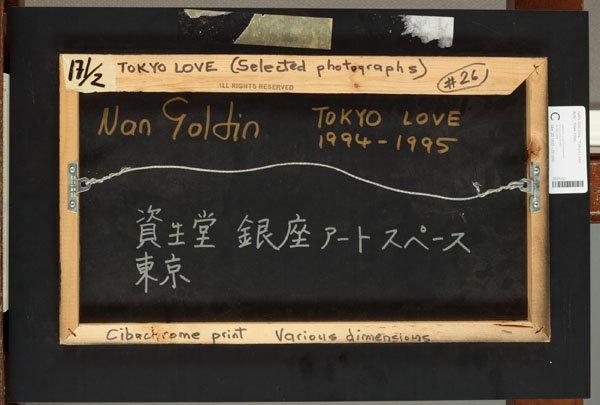 17/2 TOKYO LOVE (Selected photographs) #26
ALL RIGHTS RESERVED
Nan Goldin
TOKYO LOVE
1994-1995
資生堂 銀座アートスペース
東京
Cibachrome print Various dimensions
C